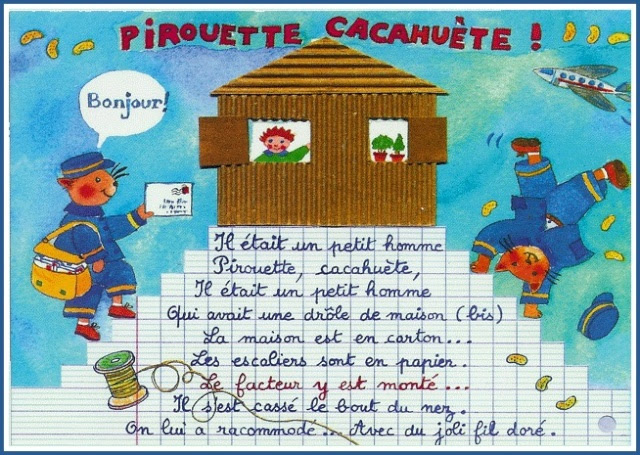 PIROUETTE CACAHUÈTE !
Bonjour!
Il était un petit homme
Pirouette, cacahuète,
Il était un petit homme
Qui avait une drôle de maison (bis)
La maison est en carton...
Les escaliers sont en papier.
Le facteur y est monté...
Il s'est cassé le bout du nez.
On lui a racommodé... Avec du joli fil doré.